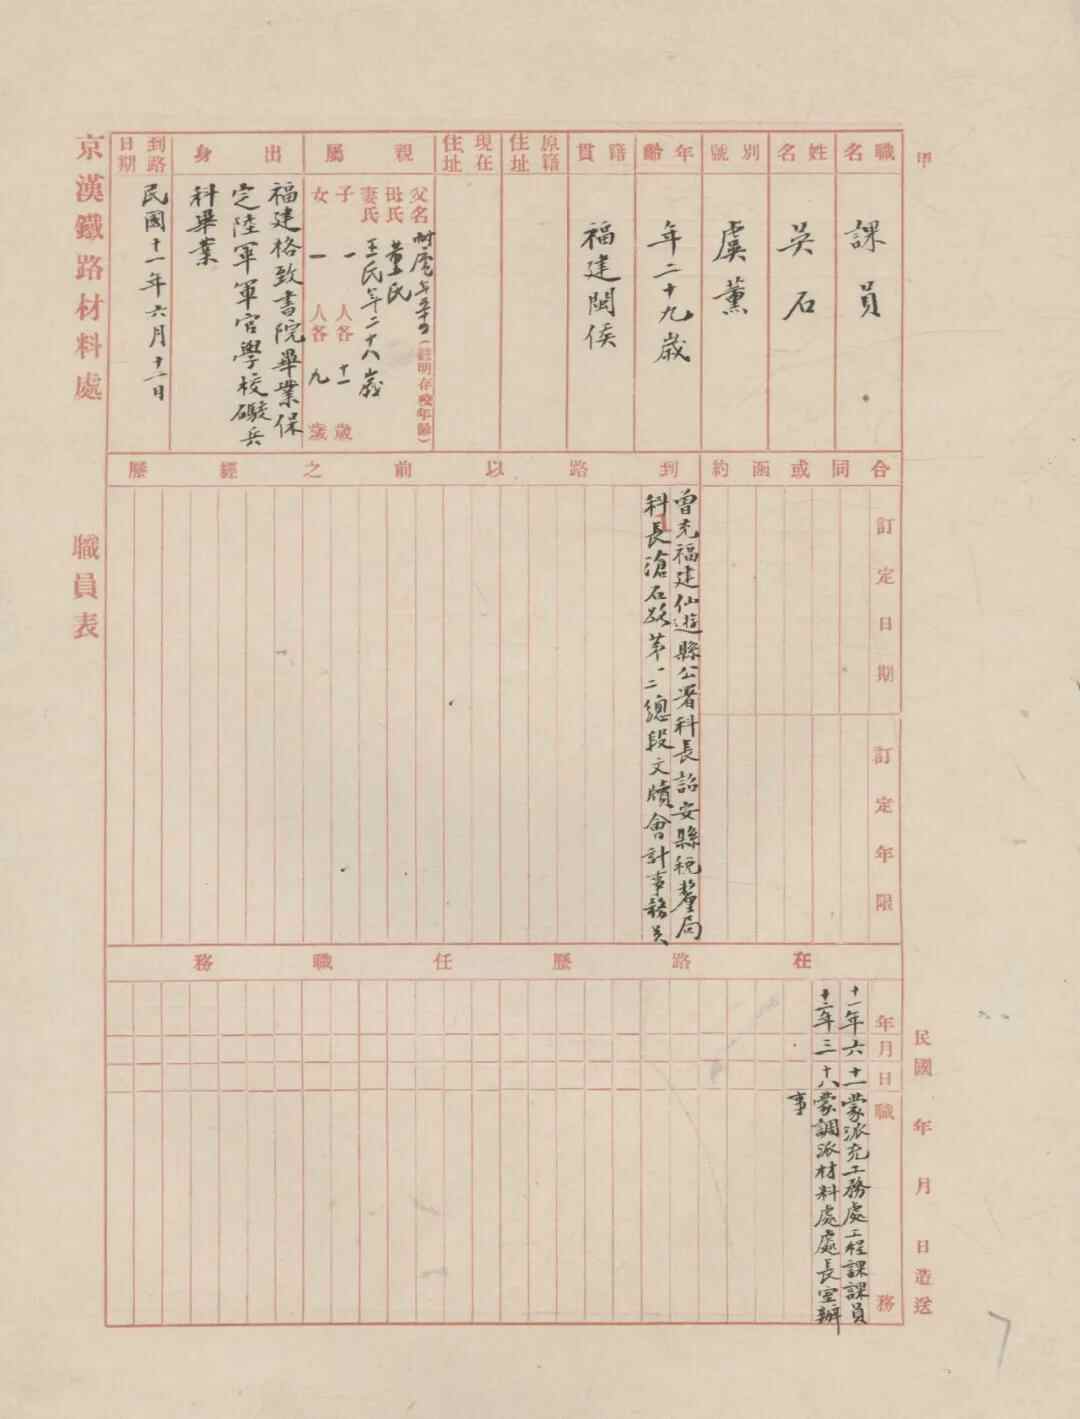 甲
職名
課員
姓名
吳石
別號
虞薰
年齡
年二十九歲
籍貫
福建閩侯
原籍住址
現在住址
親屬
父名 年五十四（註明存歿年齡）
母氏 董氏
妻氏 王氏年二十八歲
子 一 人各 十一 歲
女 一 人各 九 歲
出身
福建格致書院畢業保
定陸軍軍官學校礮兵
科畢業
到路日期
民國十一年六月十一日
京漢鐵路材料處 職員表
合同或函約
訂定日期
訂定年限
到路以前之經歷
曾充福建仙遊縣公署科長詔安縣稅釐局
科長滄石路第一二總段文牘會計事務員
在路歷任職務
年月日職務
十一年六十一蒙派充工務處工程課課員
十二年三十八蒙調派材料處處長室辦
事
民國 年 月 日造送
7